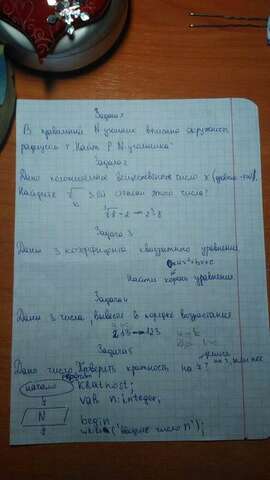 Задача 1
В правильный N-угольник вписана окружность
радиуса r. Найти P N-угольника
Задача 2
Дано положительное вещественное число x
Найдите 3-ей степени этого числа
∛8 = 2 → 2^3 8
Задача 3
Даны 3 коэффициента квадратного уравнения
ax²+bx+c
Найти корень уравнения
Задача 4
Даны 3 числа, вывести в порядке возрастания
213 → 123
Задача 5
Дано число. Проверить кратность на 7?
начало kratnost;
var n: integer;
N begin
write('введите число n');